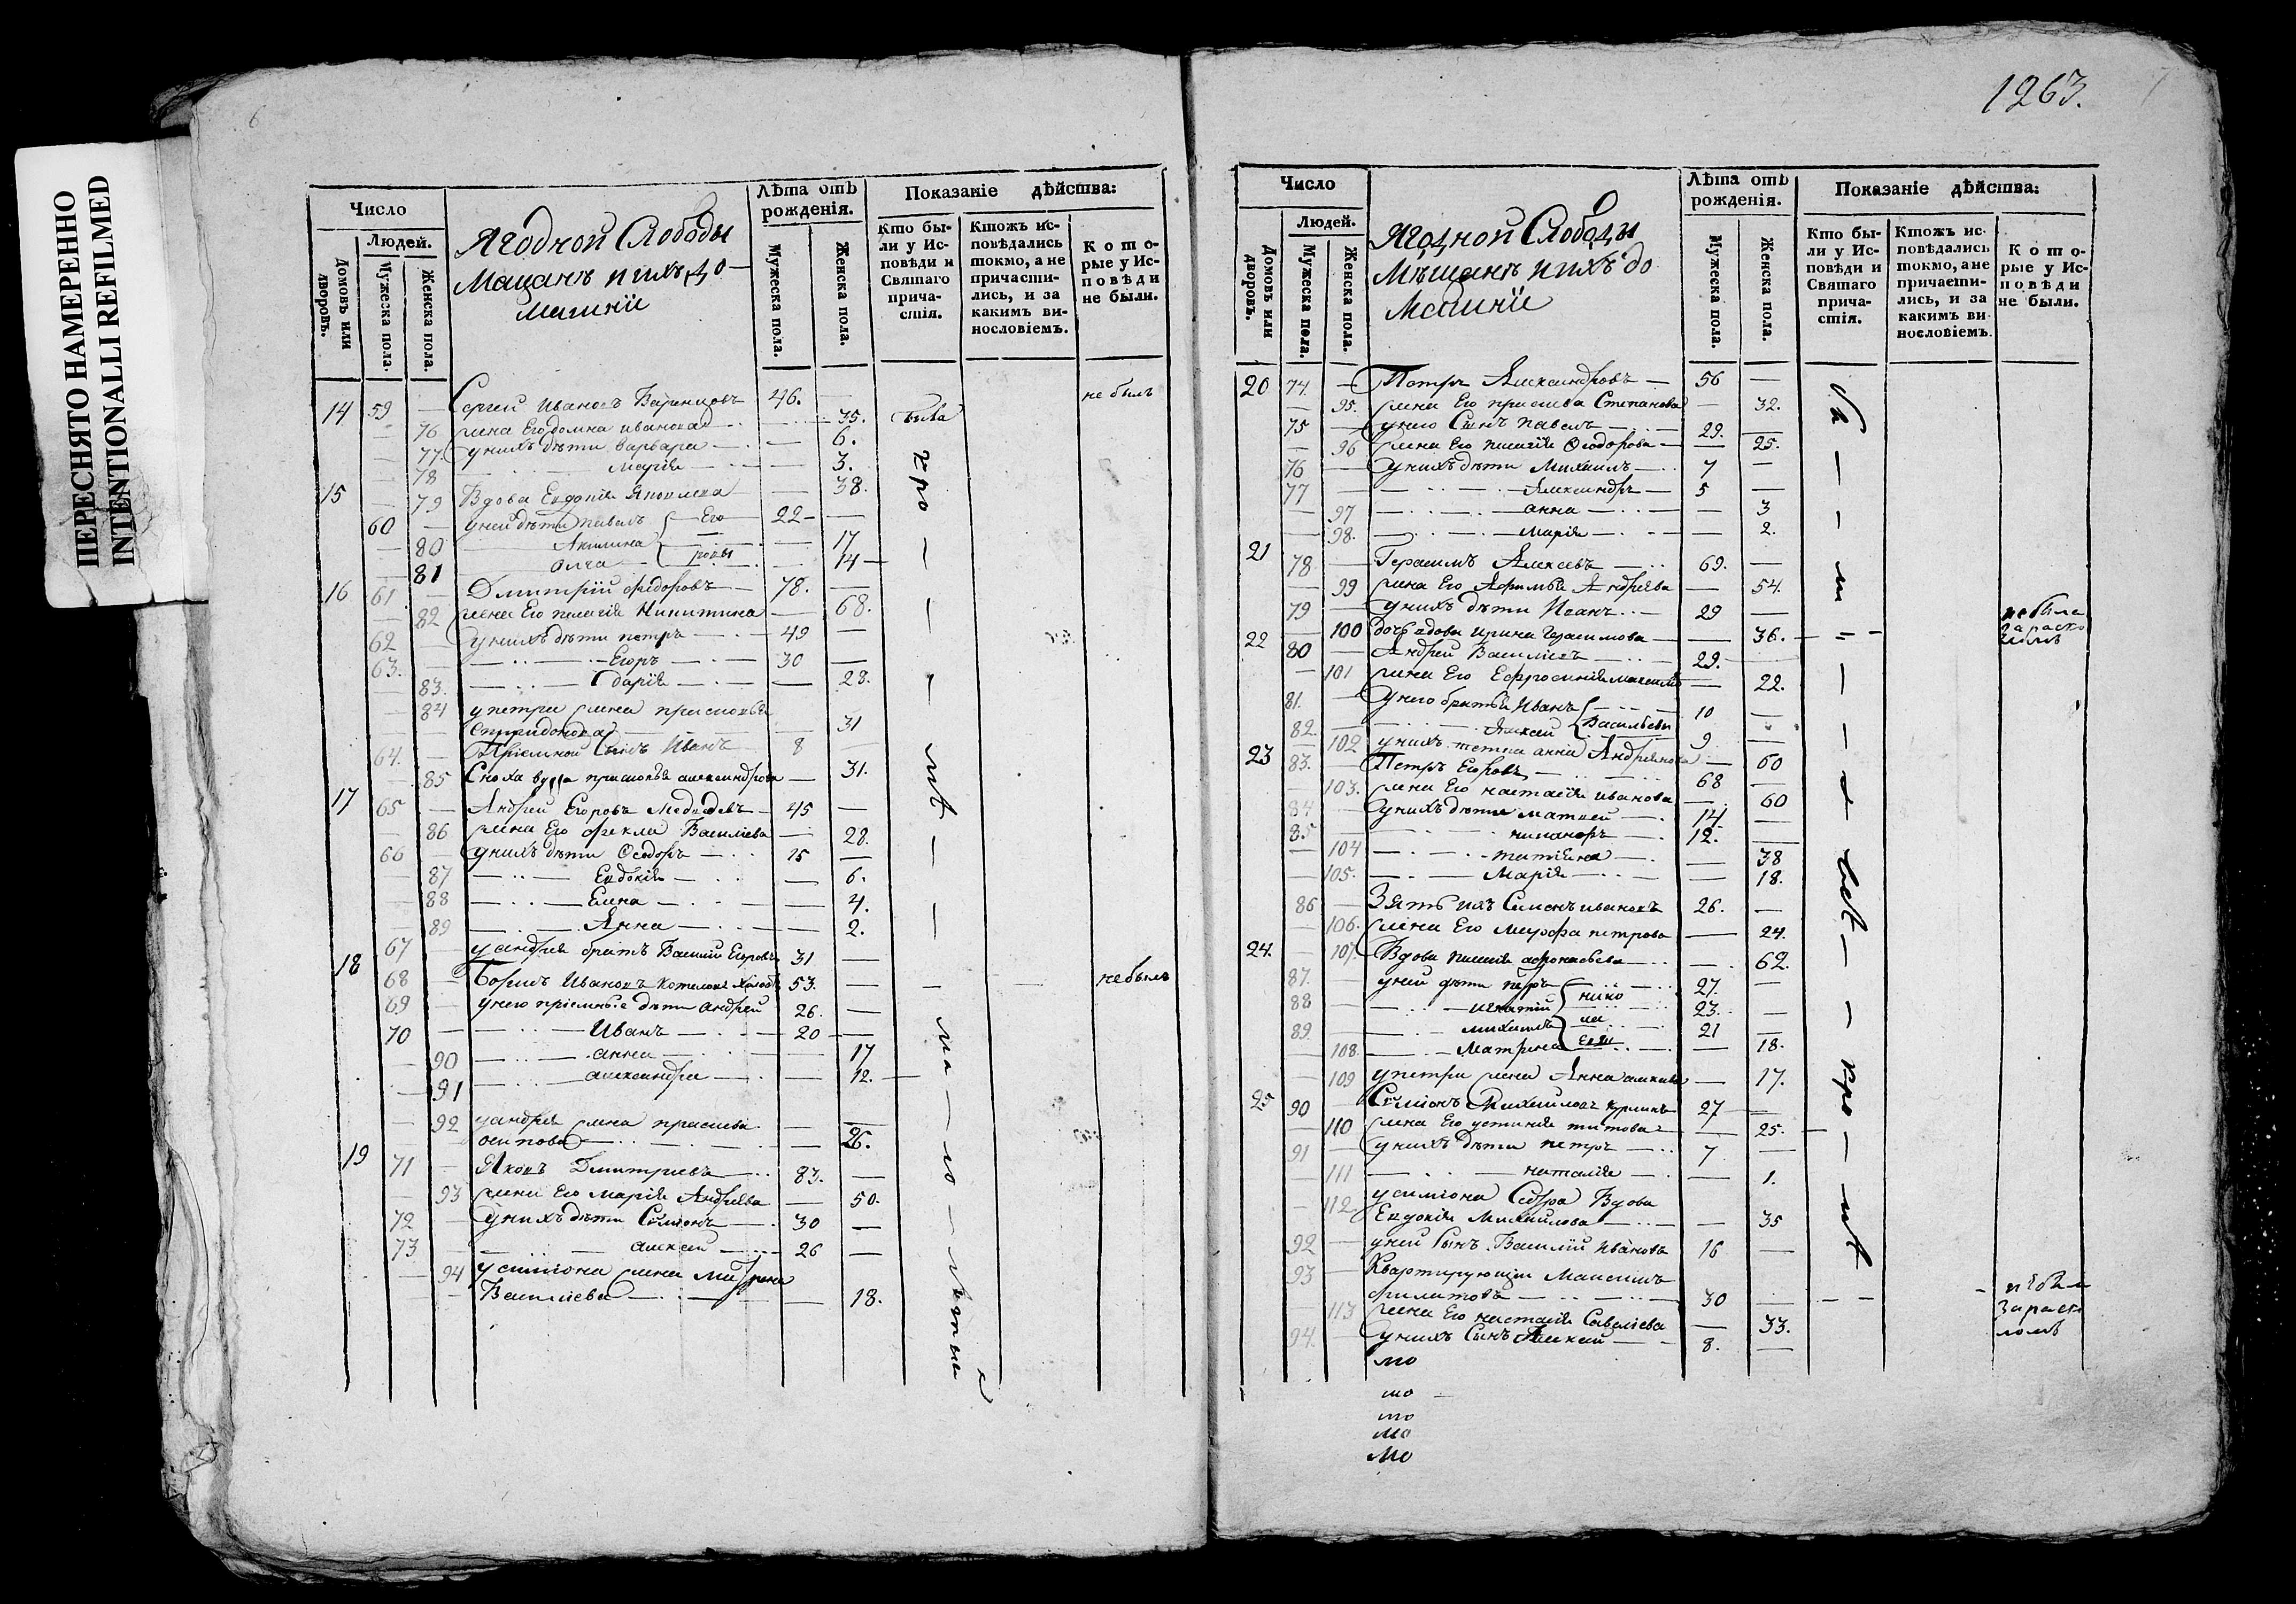 ПЕРЕСНЯТО НАМЕРЕННО
INTENTIONALLI REFILMED
6
Число
Людей.
Домовъ или дворовъ.
Мужеска пола.
Женска пола.
Ягодной Слободы
Мащанъ и ихъ до-
машнiи
Лѣта отъ рожденія.
Мужеска пола.
Женска пола.
Показаніе дѣйства:
Кто бы-
ли у Ис-
повѣди и
Святаго
прича-
стія.
Ктожъ ис-
повѣдались
токмо, а не
причасти-
лись, и за
какимъ ви-
нословіемъ.
Кото-
рые у Ис-
повѣди
не были.
14 59 — Сергей Ивановъ 46. — не былъ
— 76 жена Его домна иванова — 35. была
— 77. у нихъ дѣти варвара — 6.
— 78 — марiя — 3.
15 — 79 Вдова Евдокiя Яковлева — 38.
60 — у ней дѣти павелъ Его 22 —
— 80 Акилина — 17
— 81 олга ровы — 14 —
16 61 — Дмитрiй фидоровъ — 78. —
— 82 жена Его пелагiя Никитина — 68.
62 — у нихъ дѣти петръ — 49 —
63. — Егоръ — 30 —
— 83. — дарiя — 28.
— 84 у петра жена прасковья
Спиридонова — 31
64. — Прiемной Сынъ Иванъ 8 —
— 85 Сноха вдова прасковья александрова — 31.
17 65 — Андрей Егоровъ Медведевъ — 45 —
— 86 жена Его фекла Василiева — 28.
66 — у нихъ дѣти Ѳеодоръ — 15 —
— 87 — Евдокiя — 6.
— 88 — Елена — 4.
— 89 — Анна — 2.
67 — у андрея братъ Василiй Егоровъ 31 —
18 68 — Борисъ Ивановъ 53. — не былъ
69 — у него прiемныiе дѣти андрей 26. —
70 — Иванъ — 20 —
— 90 — анна — 17
— 91 — александра — 12.
— 92 у андрея жена прасковья
осипова — 26.
19 71 — Яковъ Дмитриевъ — 83. —
— 93 жена Его марiя Андрѣева — 50.
72 — у нихъ дѣти Симионъ — 30 —
73 — алексей — 26 —
— 94 у симиона жена Матрена
Василiева — 18.
1263.
7
Число
Людей.
Домовъ или дворовъ.
Мужеска пола.
Женска пола.
Ягодной Слободы
Мѣщанъ и ихъ до
машнiи
Лѣта отъ рожденія.
Мужеска пола.
Женска пола.
Показаніе дѣйства:
Кто бы-
ли у Ис-
повѣди и
Святаго
прича-
стія.
Ктожъ ис-
повѣдались
токмо, а не
причасти-
лись, и за
какимъ ви-
нословіемъ.
Кото-
рые у Ис-
повѣди
не были.
20 74. — Петръ Александровъ — 56 —
— 95. жена Его Степанова — 32.
75 — у него Сынъ павелъ — 29. —
— 96 жена Его пелагiя Ѳеодорова — 25.
76 — у нихъ дѣти Михаилъ — 7 —
77 — Александръ — 5 —
— 97 — анна — 3
— 98. — марiя — 2.
21 78 — Герасимъ Алексеевъ — 69. —
— 99 жена Его Афимья Андрѣева — 54.
79 — у нихъ дѣти Иванъ — 29 —
— 100 дочь вдова ирина Герасимова — 36. — не была
за раско
ломъ
22 80 — Андрей Василiевъ — 29. —
— 101 жена Его Ефросинiя — 22.
81. — у него братья Иванъ — 10 —
82. — Алексей Васильевы 9 —
— 102 у нихъ тетка анна Андрѣянова — 60
23 83. — Петръ Егоровъ — 68 —
— 103. жена Его настасiя иванова — 60
84 — у нихъ дѣти матвей — 14 —
85 — никаноръ — 12. —
— 104 — татiяна — 38
— 105. — Марiя — 18.
86 — Зять ихъ Симонъ ивановъ 26. —
— 106. жена Его Марфа петрова — 24.
24. — 107. Вдова пелагiя афонасьева — 62.
87. — у ней дѣти петръ — 27. —
88 — игнатiй нико 23. —
89 — михаилъ ла 21 —
— 108. — Матрена евы — 18.
— 109 у петра жена Анна — 17.
25 90 — Симионъ Михаиловъ 27 —
— 110 жена Его устинiя титова — 25.
91 — у нихъ дѣти петръ — 7 —
— 111 — наталiя — 1.
— 112. у симиона Сестра Вдова
Евдокiя Михаилова — 35
92 — у ней Сынъ Василiй Ивановъ 16 —
93 — Квартирующiи Максимъ
филиповъ — 30 —
— 113 жена Его настасiя Савелiева — 33.
94. — у нихъ Сынъ Алексей — 8. —
за раско
ломъ
мо
мо
мо
мо
мо